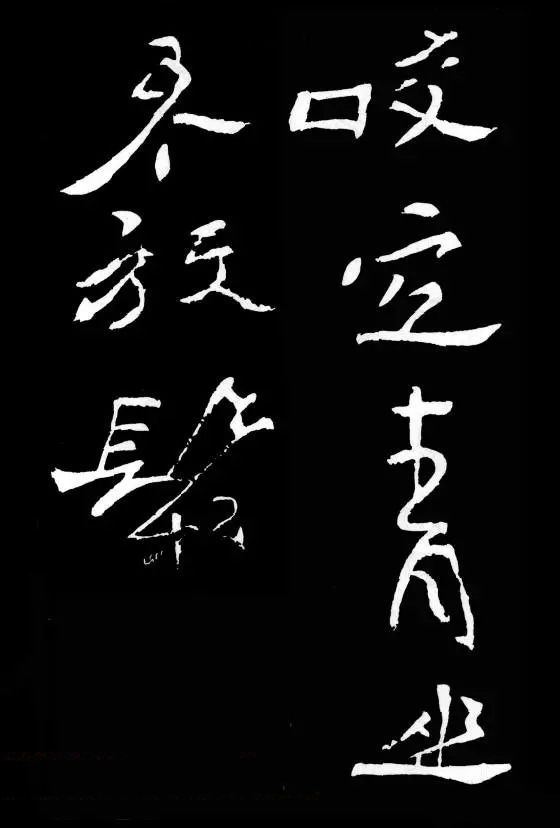 咬定青山
不放鬆